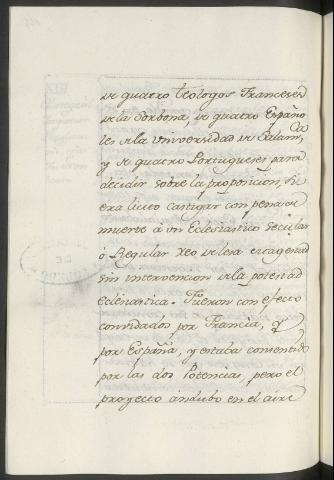 de quatro teologos Franceses
de la Sorbona, de quatro Españo
les de la Universidad de Salamca
y de quatro Portugueses para
decidir sobre la proposicion, si
era licito castigar con pena de
muerte a un Eclesiastico Secular
ó Regular reo de lesa magestad
sin intervencion de la potestad
eclesiastica. Fueron con efecto
convidados por Francia, y
por España, y estaba consentido
por las dos Potencias, pero el
proyecto andubo en el aire